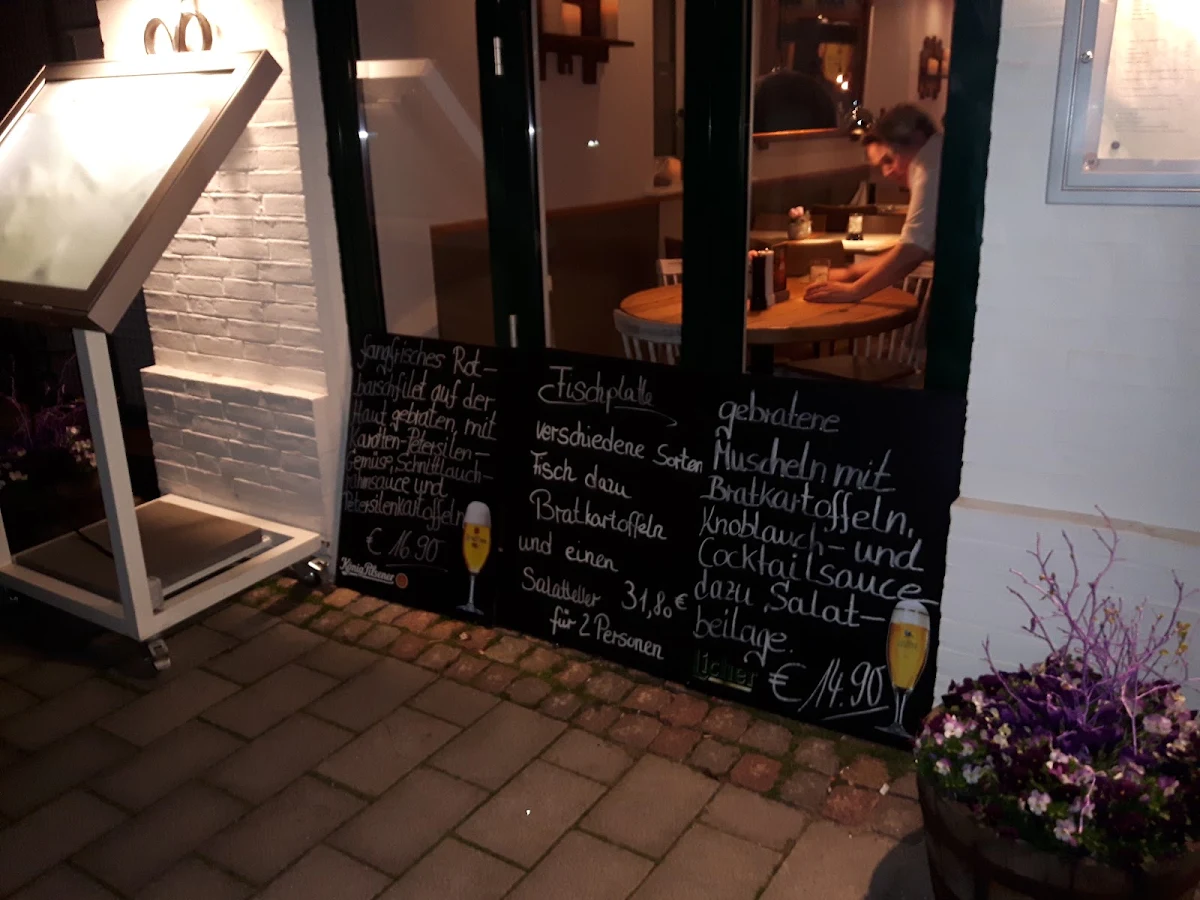 fangfrisches Rot-
barschfilet auf der
Haut gebraten, mit
Karotten-Petersilien-
Gemüse, Schnittlauch-
rahmsauce und
Petersilienkartoffeln
€ 16.90
König Pilsener
Fischplatte
verschiedene Sorten
Fisch dazu
Bratkartoffeln
und einen
Salatteller 31,80€
für 2 Personen
gebratene
Muscheln mit
Bratkartoffeln,
Knoblauch- und
Cocktailsauce
dazu Salat-
beilage.
Licher
€ 14.90